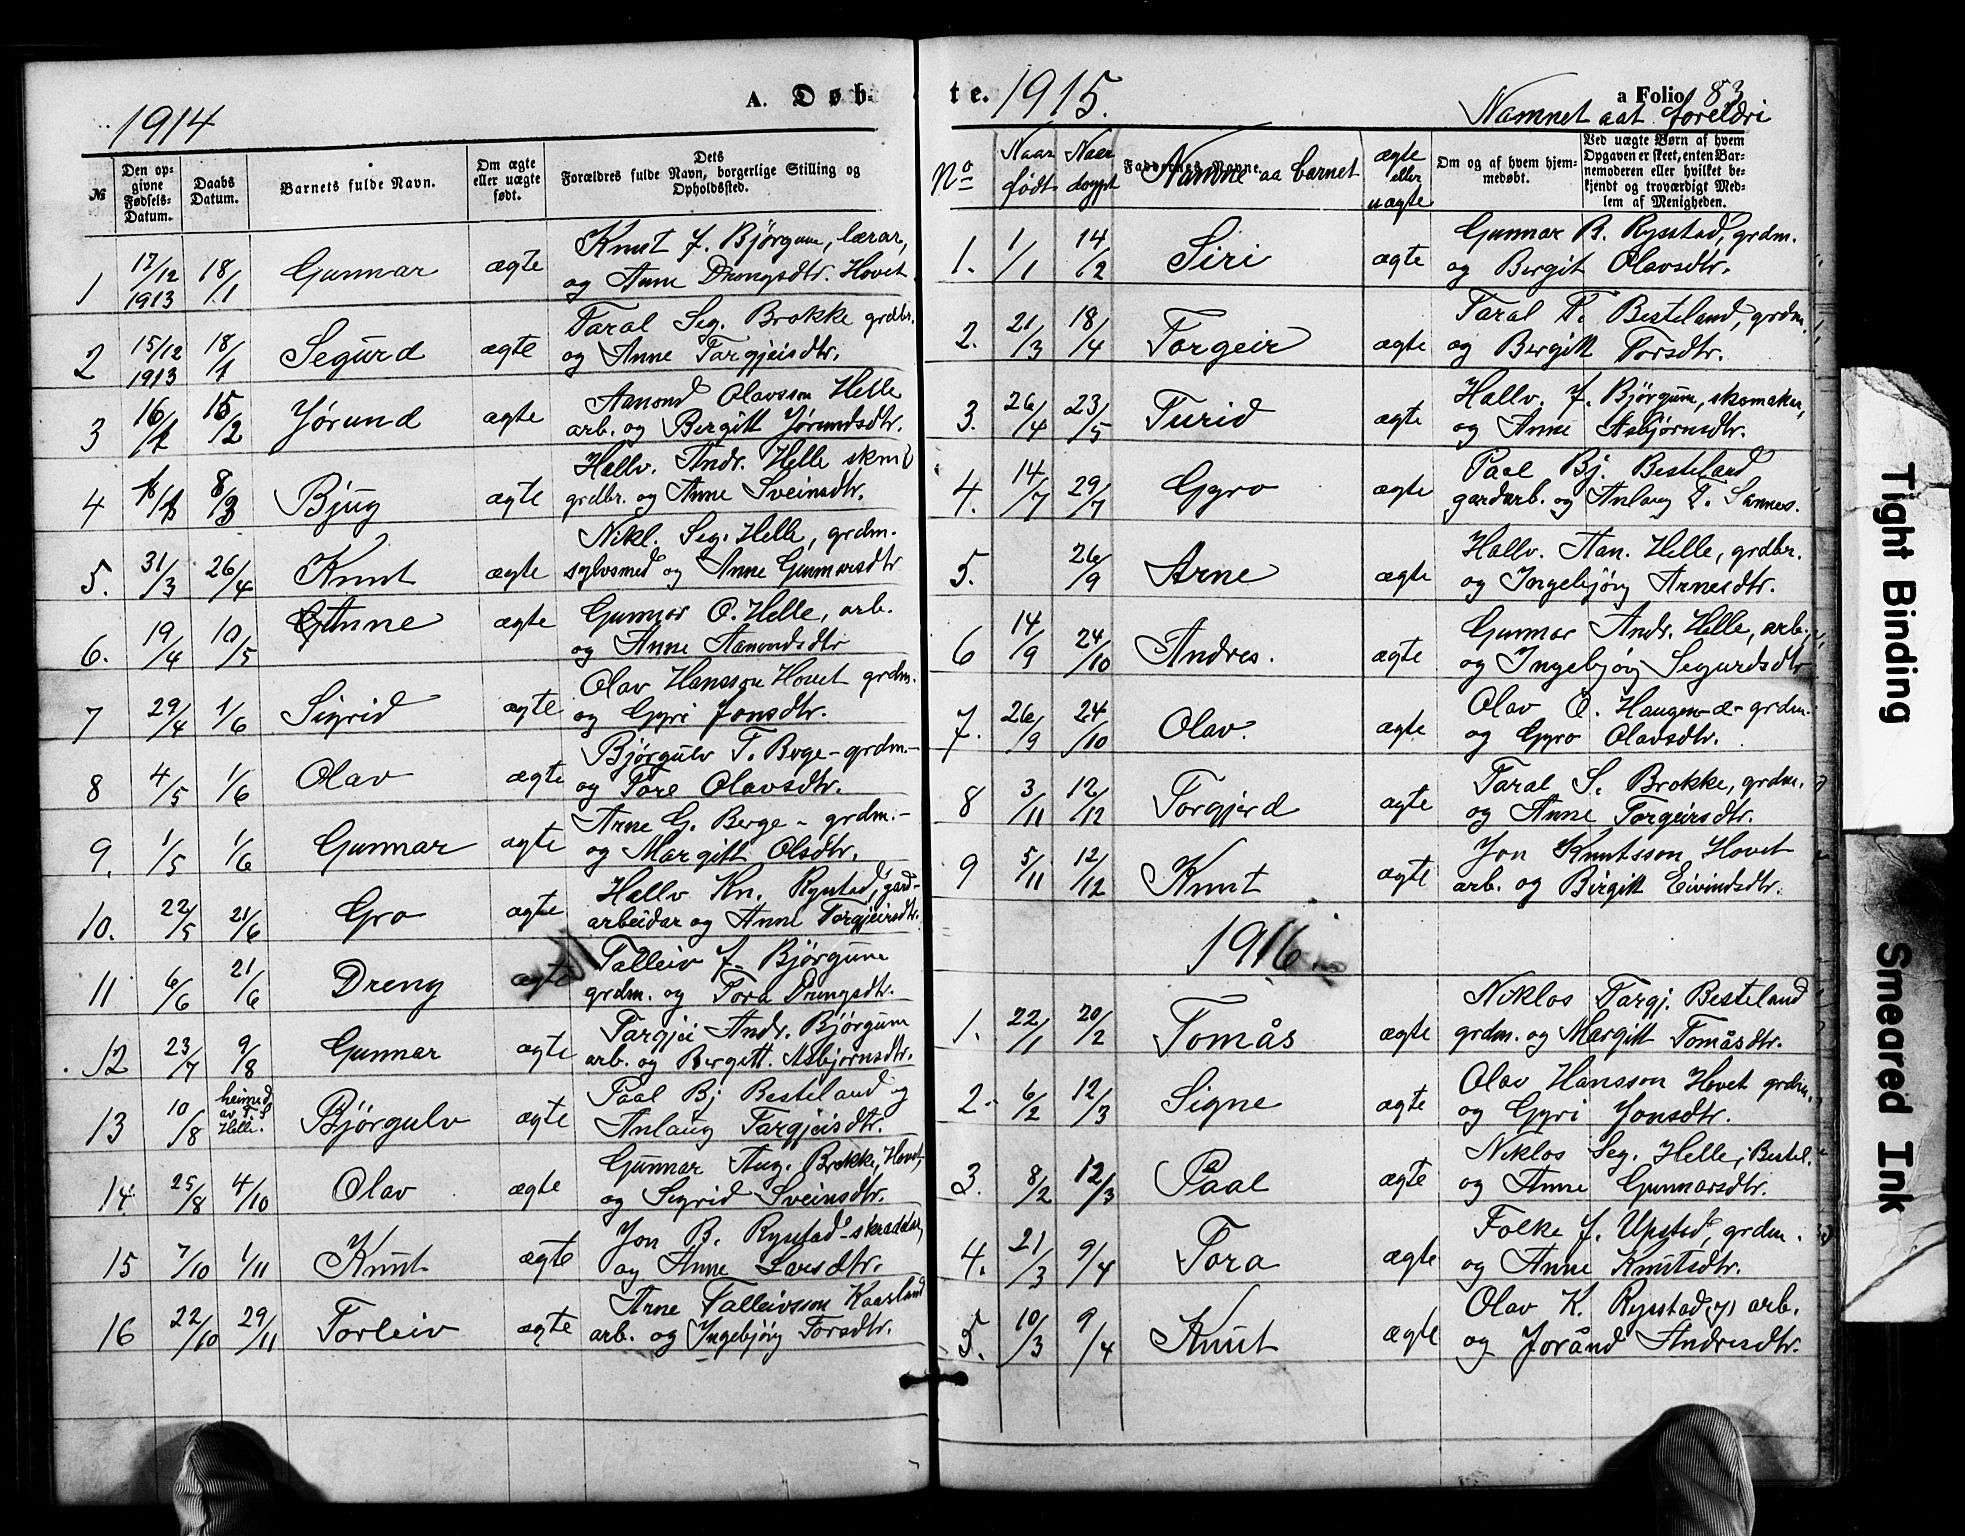 1914
A. Døb-
№
Den op-
givne
Fødsels-
Datum.
Daabs
Datum.
Barnets fulde Navn.
Om ægte
eller uægte
født.
Dets
Forældres fulde Navn, borgerlige Stilling og
Opholdssted.
1 17/12 1913 18/1 Gunnar ægte Knut J. Bjørgum, lærar,
og Anne Drengsdtr. Hovet
2 15/12 1913 18/1 Segurd ægte Taral Seg. Brokke grdbr.
og Anne Targjeisdtr.
3 16/1 15/2 Jørund ægte Aamond Olavsson Helle
arb. og Bergitt Jørundsdtr.
4 8/3 Bjug ægte Hallv. Andr. Helle
grdbr. og Anne Sveinsdtr.
5. 31/3 26/4 Knut ægte Nikl. Seg. Helle, grdm.
sylvsmed og Anne Gunnarsdtr
6. 19/4 10/5 Anne ægte Gunnar O. Helle, arb.
og Anne Aamondsdtr
7 29/4 1/6 Sigrid ægte Olav Hansson Hovet grdm.
og Gyri Jonsdtr.
8 4/5 1/6 Olav ægte Bjørgulv T. Berge - grdm. -
og Tore Olavsdtr.
9. 1/5 1/6 Gunnar ægte Arne G. Berge - grdm. -
og Margitt Olsdtr.
10. 22/5 21/6 Gro ægte Hallv Kn. Rystad, gard-
arbeidar og Anne Torgjeirsdtr.
11 6/6 21/6 Dreng ægte Talleiv J. Bjørgum
grdm. og Tora Drengsdtr.
12 23/7 9/8 Gunnar ægte Targjei Andr. Bjørgum
arb. og Bergitt Asbjørnsdtr.
13 10/8 heimed
av T. S
Helle. Bjørgulv ægte Paal Bj. Besteland og
Anlaug Targjeisdtr.
14 25/8 4/10 Olav ægte Gunnar Aug. Brokke, Hovet,
og Sigrid Sveinsdtr.
15 7/10 1/11 Knut ægte Jon B. Rystad - skraddar,
og Anne Larsdtr.
16 22/10 29/11 Torleiv ægte Arne Talleivsson Kaarland
arb. og Ingebjørg Torsdtr.
te. 1915.
a Folio 83
Namnet aat foreldri
No
Naar
født
Naar
døypt
Faddernes Navne.
Namne aa barnet
ægte
eller
uægte
Om og af hvem hjem-
medøbt.
Ved uægte Børn af hvem
Opgaven er skeet, enten Bar-
nemoderen eller hvilket be-
kjendt og troværdigt Med-
lem af Menigheden.
1. 1/1 14/2 Siri ægte Gunnar B. Rystad, grdm.
og Bergit Olavsdtr.
2. 21/3 18/4 Torgeir ægte Taral T. Besteland, grdm.
og Bergitt Torsdtr.
3. 26/4 23/5 Turid ægte Hallv. J. Bjørgum, skomaker,
og Anne Asbjørnsdtr.
4. 14/7 29/7 Gyro ægte Paal Bj. Besteland
gardarb. og Anlaug T. Sannes.
5. 26/9 Arne ægte Hallv. Aan. Helle, grdbr.
og Ingebjörg Arnesdtr.
6 14/9 24/10 Andres. ægte Gunnar Andr. Helle, arb.
og Ingebjörg Segurdsdtr
7. 26/9 24/10 Olav. ægte Olav O. Haugen - grdm.
og Gyro Olavsdtr.
8 3/11 12/12 Torgjerd ægte Taral S. Brokke, grdm.
og Anne Torgeirsdtr.
9 5/11 12/12 Knut ægte Jon Knutsson Hovet
arb. og Birgitt Eivindsdtr.
1916.
1. 22/1 20/2 Tomås ægte Niklos Targj. Besteland
grdm. og Margitt Tomåsdtr.
2. 6/2 12/3 Signe ægte Olav Hansson Hovet grdm.
og Gyri Jonsdtr.
3. 8/2 12/3 Paal ægte Niklos Seg. Helle, Bestel.
og Anne Gunnarsdtr.
4. 21/3 9/4 Tora ægte Folke J. Upstad, grdm.
og Anne Knutsdtr.
5. 10/3 9/4 Knut ægte Olav K. Rysstad arb.
og Joränd Andresdtr.
Tight Binding
Smeared Ink